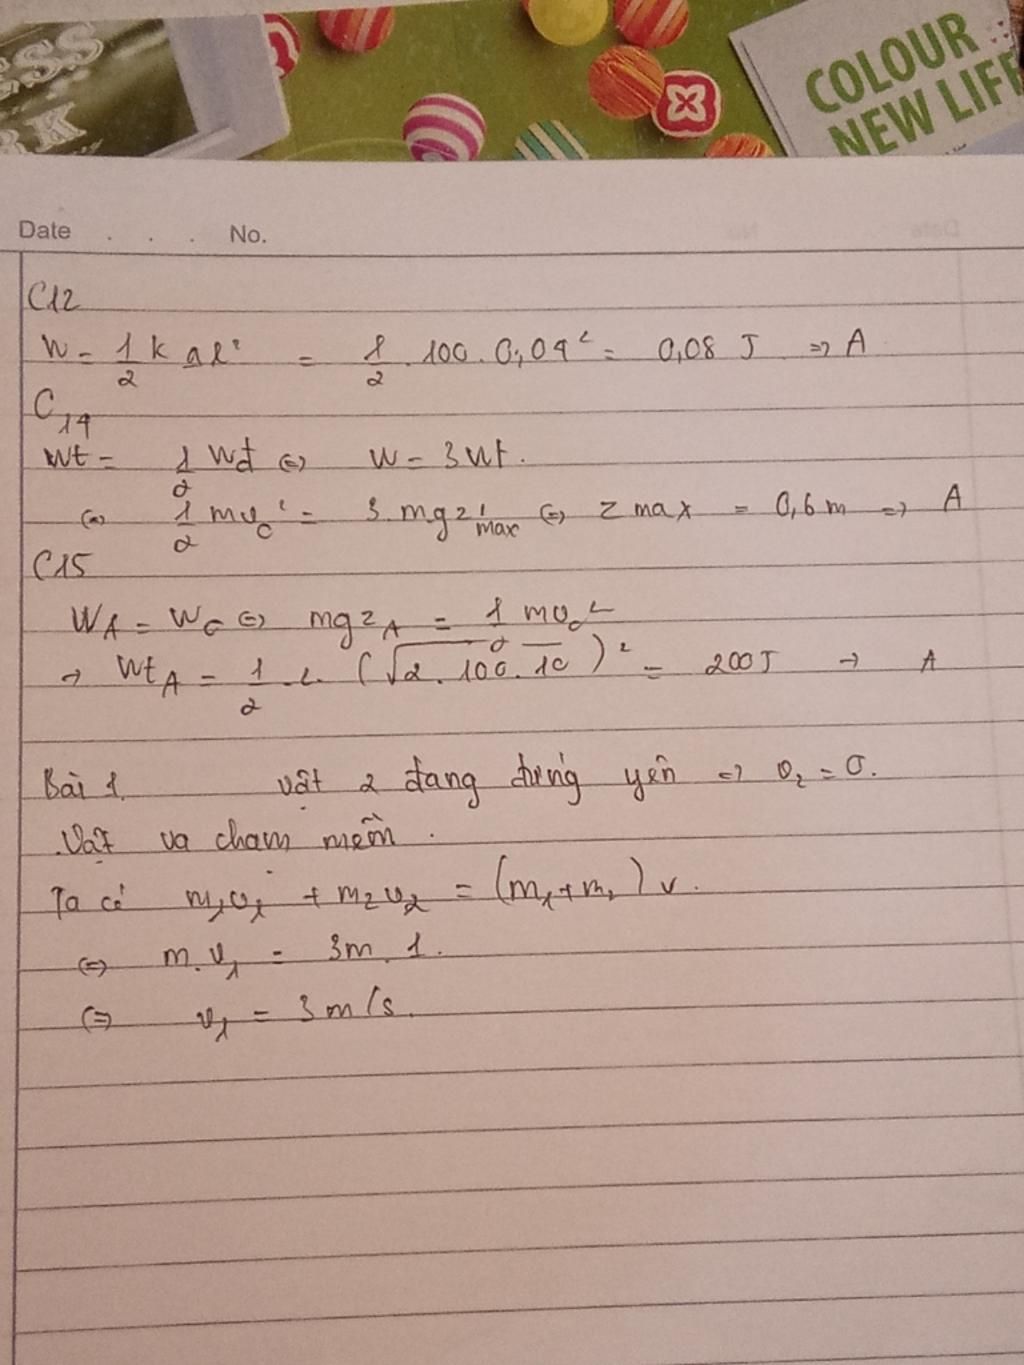 ESS
RK
COLOUR
NEW LIFE
Date . . . No.
C12
W = 1/2 k Δl² = 1/2 . 100 . 0,04² = 0,08 J => A
C14
Wt = 1/2 Wđ <=> W = 3Wt.
<=> 1/2 mv₀² = 3.mgz'max <=> z max = 0,6m => A
C15
WA = WO <=> mgzA = 1/2 mv₀²
→ WtA = 1/2 . (√2.100.10)² = 200J → A
Bài 1. vật 2 đang đứng yên => v₂ = 0.
Vật va chạm mềm.
Ta có m₁v₁ + m₂v₂ = (m₁+m₂) v.
<=> m.v₁ = 3m.1.
<=> v₁ = 3m/s.